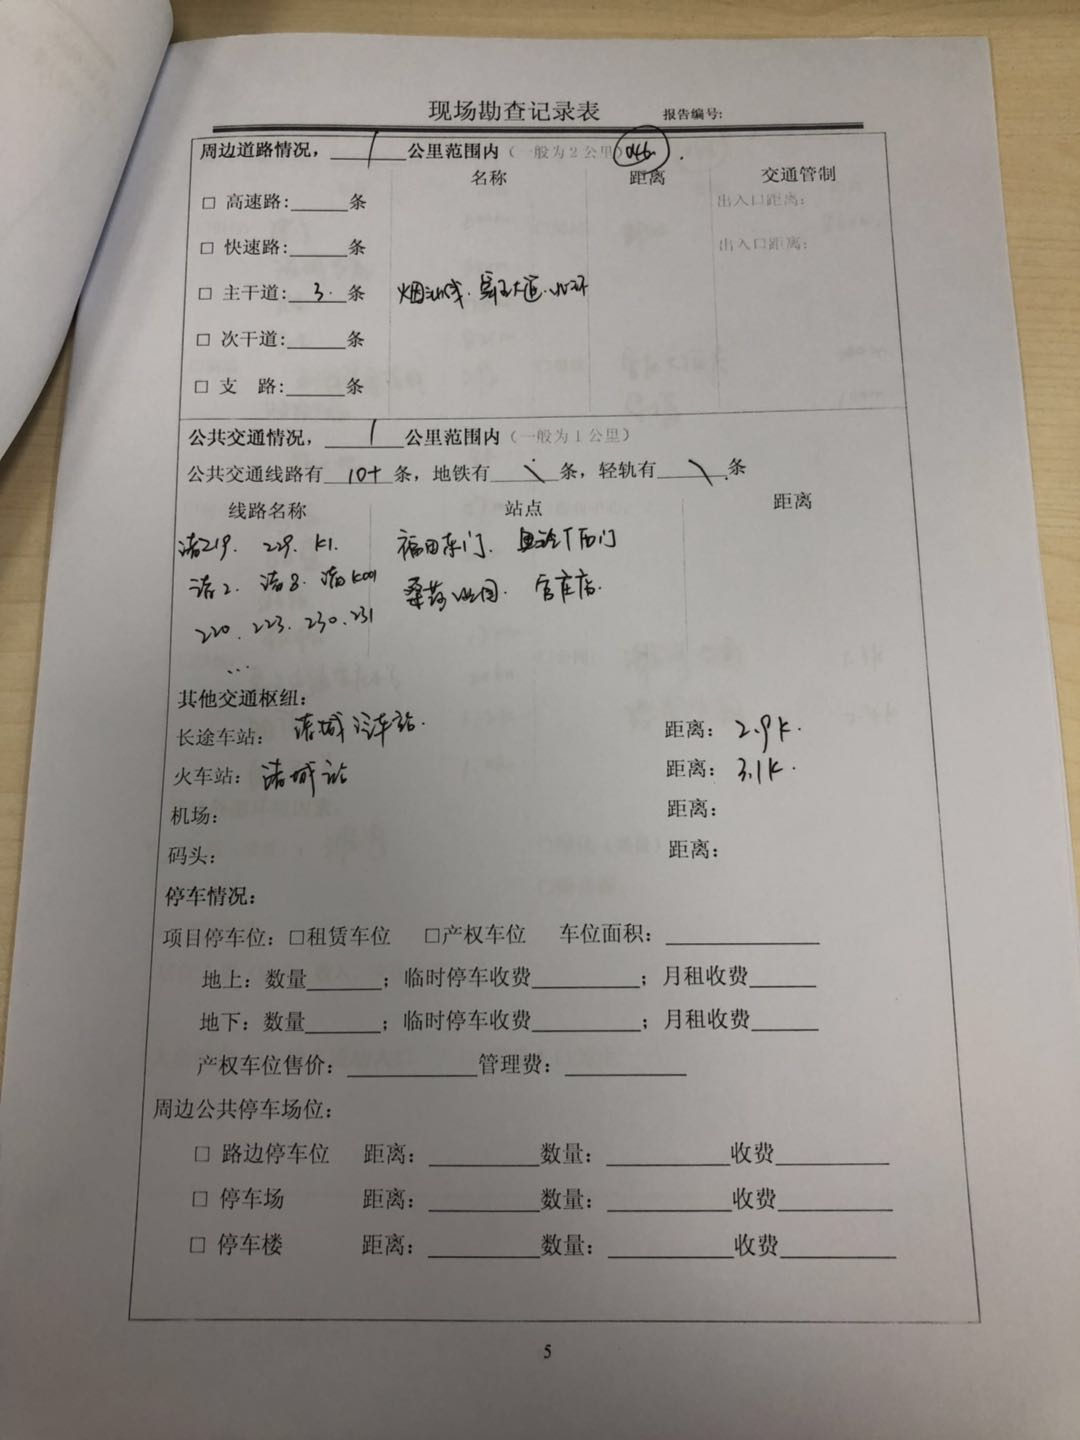 现场勘查记录表 报告编号:
周边道路情况，1公里范围内（一般为2公里）
名称 距离 交通管制
□ 高速路:______条 出入口距离:
□ 快速路:______条 出入口距离:
□ 主干道: 3. 条
□ 次干道:______条
□ 支 路:______条
公共交通情况，1公里范围内（一般为1公里）
公共交通线路有 10+ 条，地铁有 \ 条，轻轨有 \ 条
线路名称 站点 距离
诸219. 229. K1. 福田东门.
诸2. 诸8. 诸K001
220. 223. 230. 231
...
其他交通枢纽:
长途车站: 诸城汽车站. 距离: 2.9K.
火车站: 诸城站 距离: 3.1K.
机场: 距离:
码头: 距离:
停车情况:
项目停车位: □租赁车位 □产权车位 车位面积:____________
地上: 数量______; 临时停车收费________; 月租收费_____
地下: 数量______; 临时停车收费________; 月租收费_____
产权车位售价:__________管理费:__________
周边公共停车场位:
□ 路边停车位 距离:_________数量:__________收费_________
□ 停车场 距离:_________数量:__________收费_________
□ 停车楼 距离:_________数量:__________收费_________
5